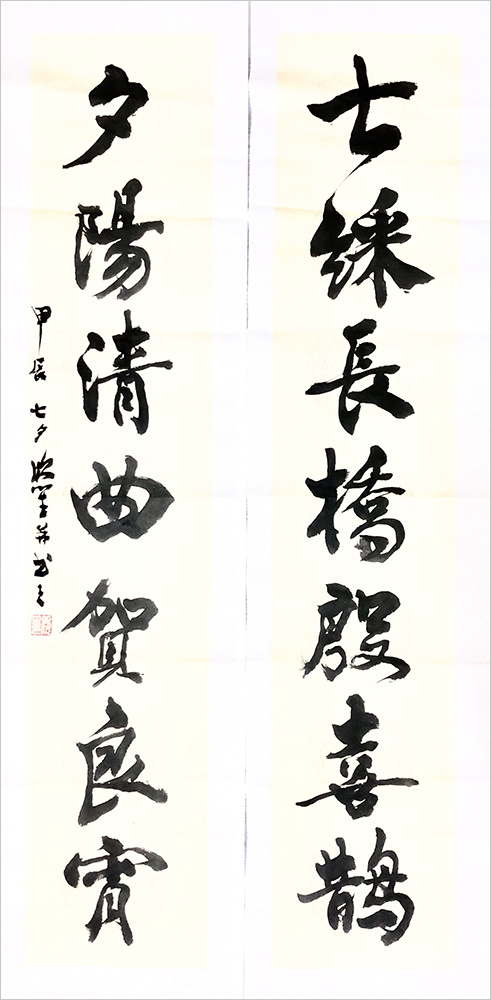 七綵長橋殷喜鹊
夕陽清曲賀良宵
甲辰七夕并书之